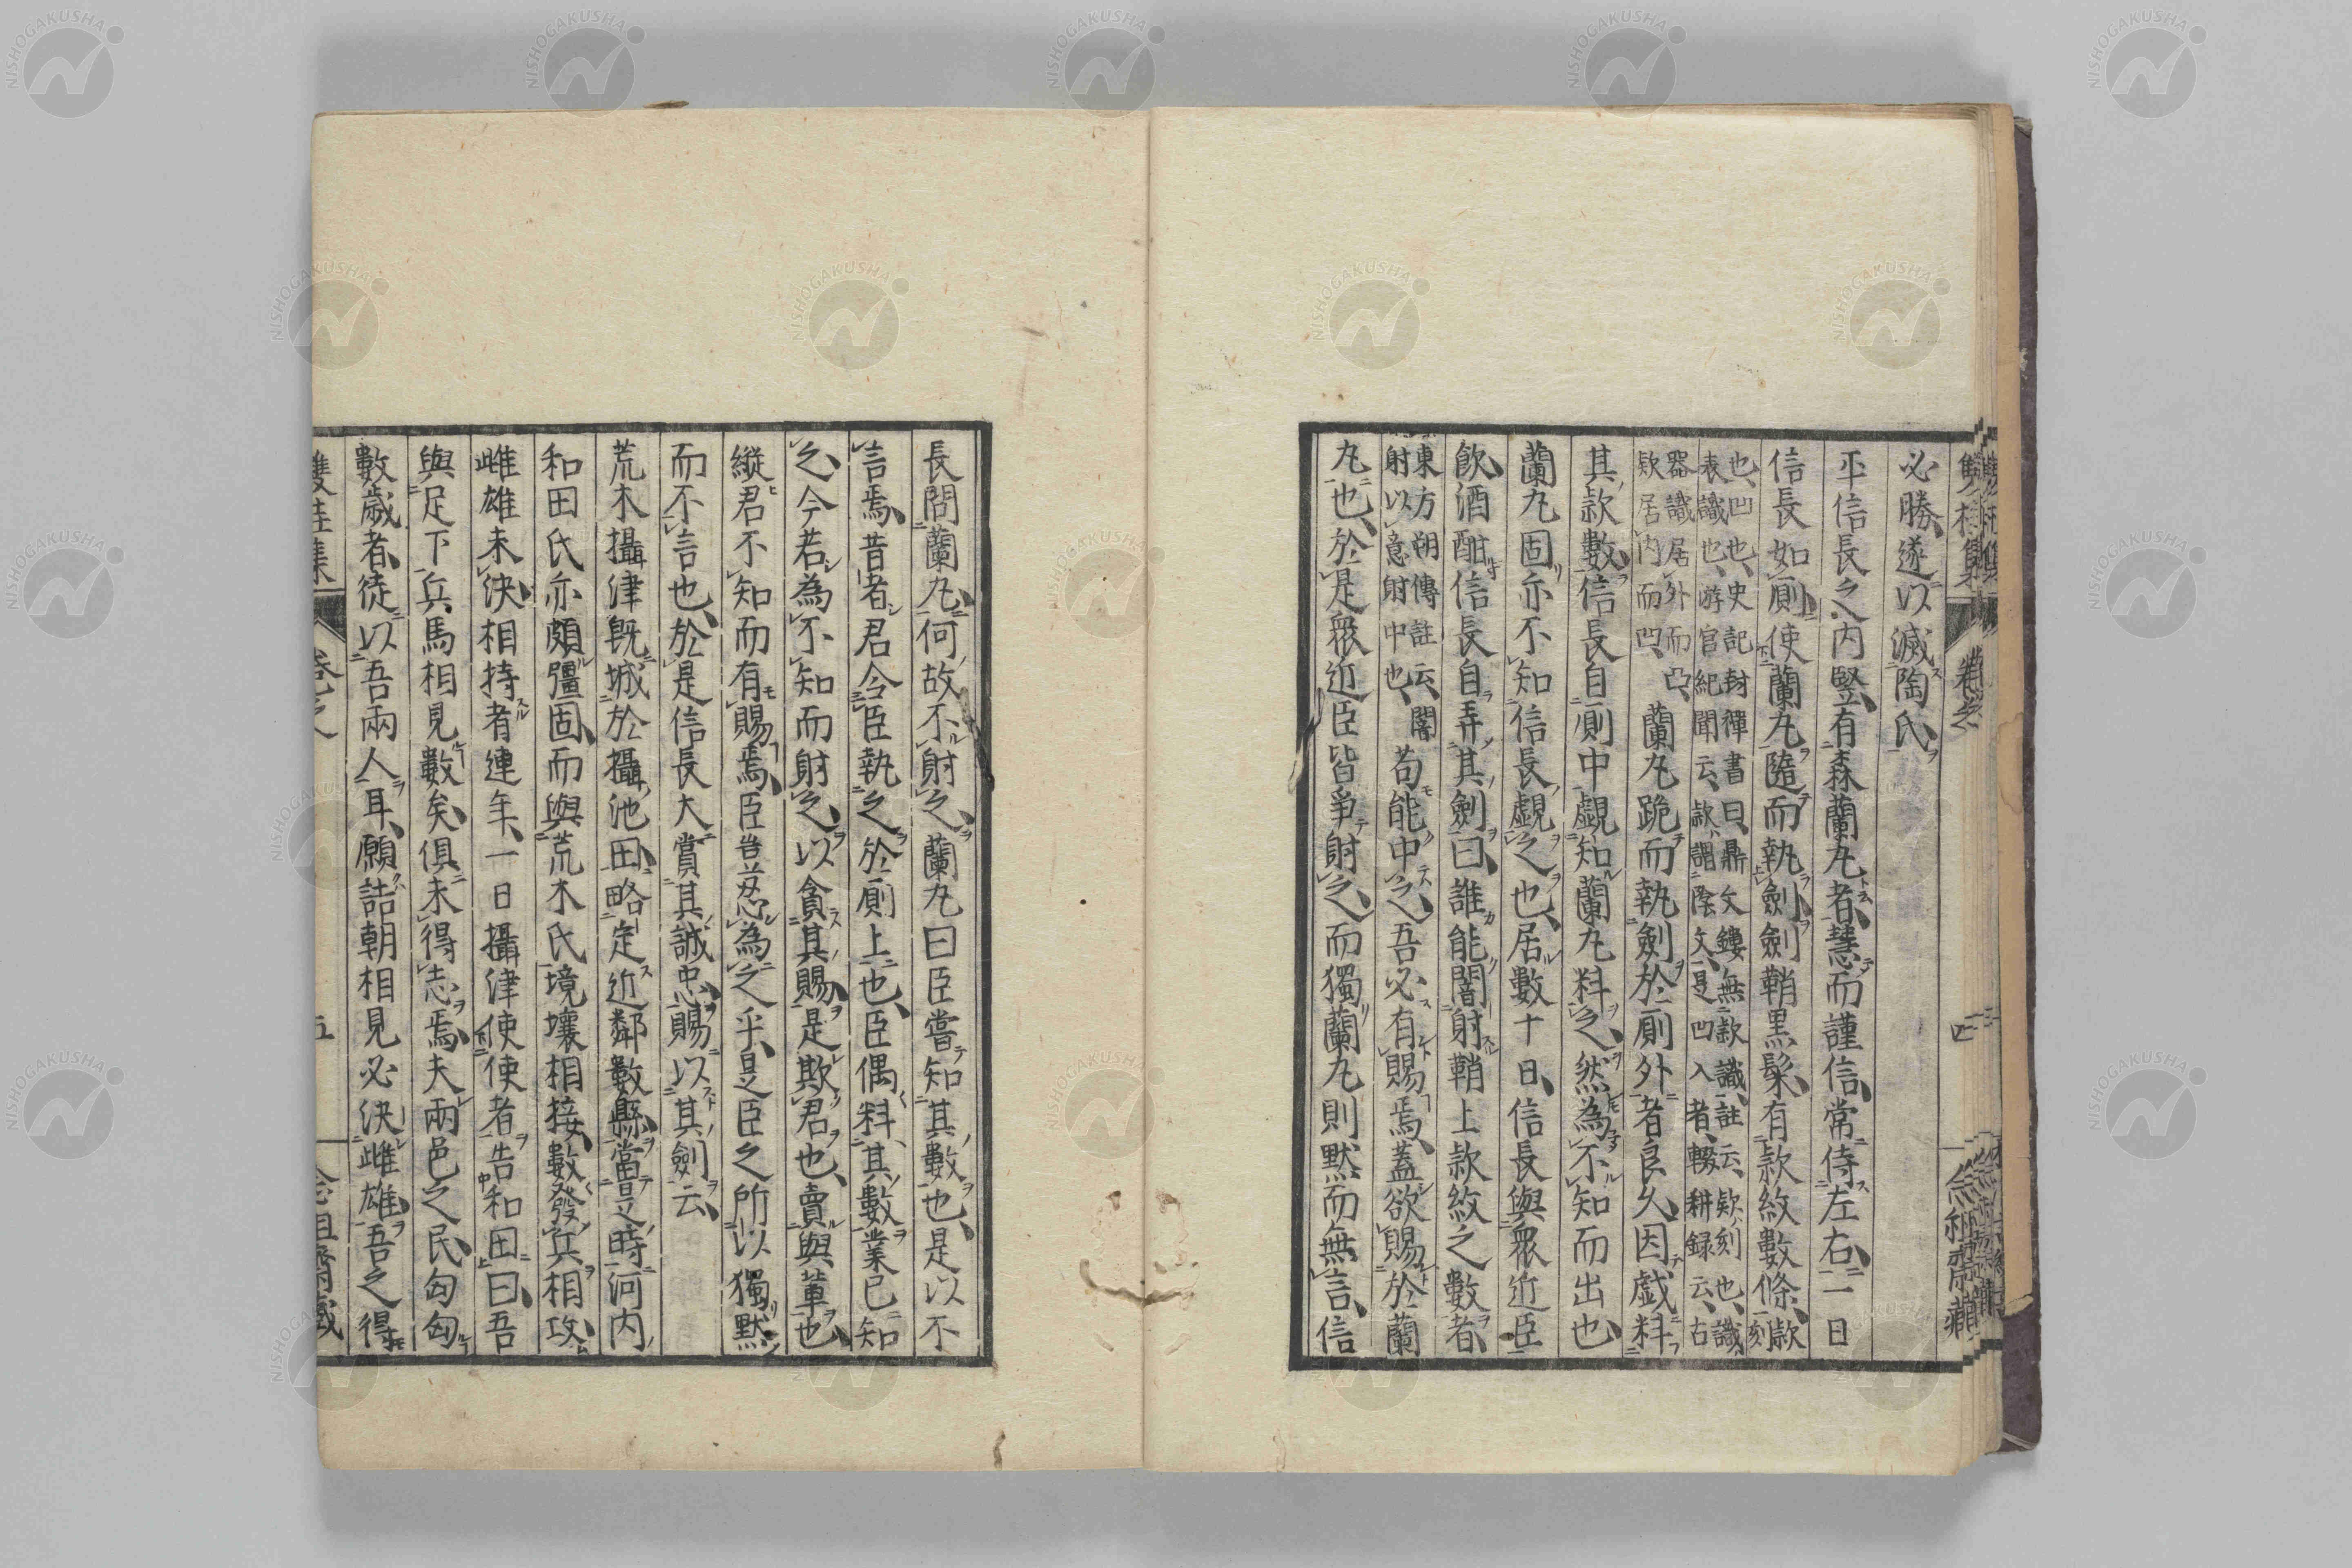 必勝、遂以滅陶氏、
平信長之内豎、有森蘭丸者、慧而謹信、常侍左右、一日
信長如厠、使蘭丸隨而執劍、劍鞘黒髤、有款紋數條、款刻
也、凹也、史記封禪書曰、鼎文鏤無款識、註云、款、刻也、識、
表識也、游官紀聞云、款、謂陰文、是凹入者、輟耕録云、古
器識居外而凸、
款居内而凹、
蘭丸跪而執劍於厠外者良久、因戯料
其款數、信長自厠中覷知蘭丸料之、然為不知而出也、
蘭丸固亦不知信長覷之也、居數十日、信長與衆近臣
飲酒酣信長自弄其劍曰、誰能闇射鞘上款紋之數者、
東方朔傳註云、闇
射以意射中也、
苟能中之、吾必有賜焉、蓋欲賜於蘭
丸也、於是衆近臣皆爭射之、而獨蘭丸則默而無言、信
長問蘭丸、何故不射之、蘭丸曰臣嘗知其數也、是以不
言焉、昔者君令臣執之於厠上也、臣偶料其數業已知
之、今若為不知而射之、以貪其賜、是欺君也、賣與輩也
縱君不知而有賜焉、臣豈忍為之乎、是臣之所以獨默
而不言也、於是信長大賞其誠忠、賜以其劍云、
荒木攝津既城於攝池田、略定近鄰數縣、當是時河内
和田氏亦頗彊固、而與荒木氏境壤相接、數發兵相攻、
雌雄未決、相持者連年、一日攝津使使者告和田曰、吾
與足下兵馬相見數矣、俱未得志焉、夫兩邑之民、匈匈
數歳者、徒以吾兩人耳、願詰朝相見必決雌雄、吾之得